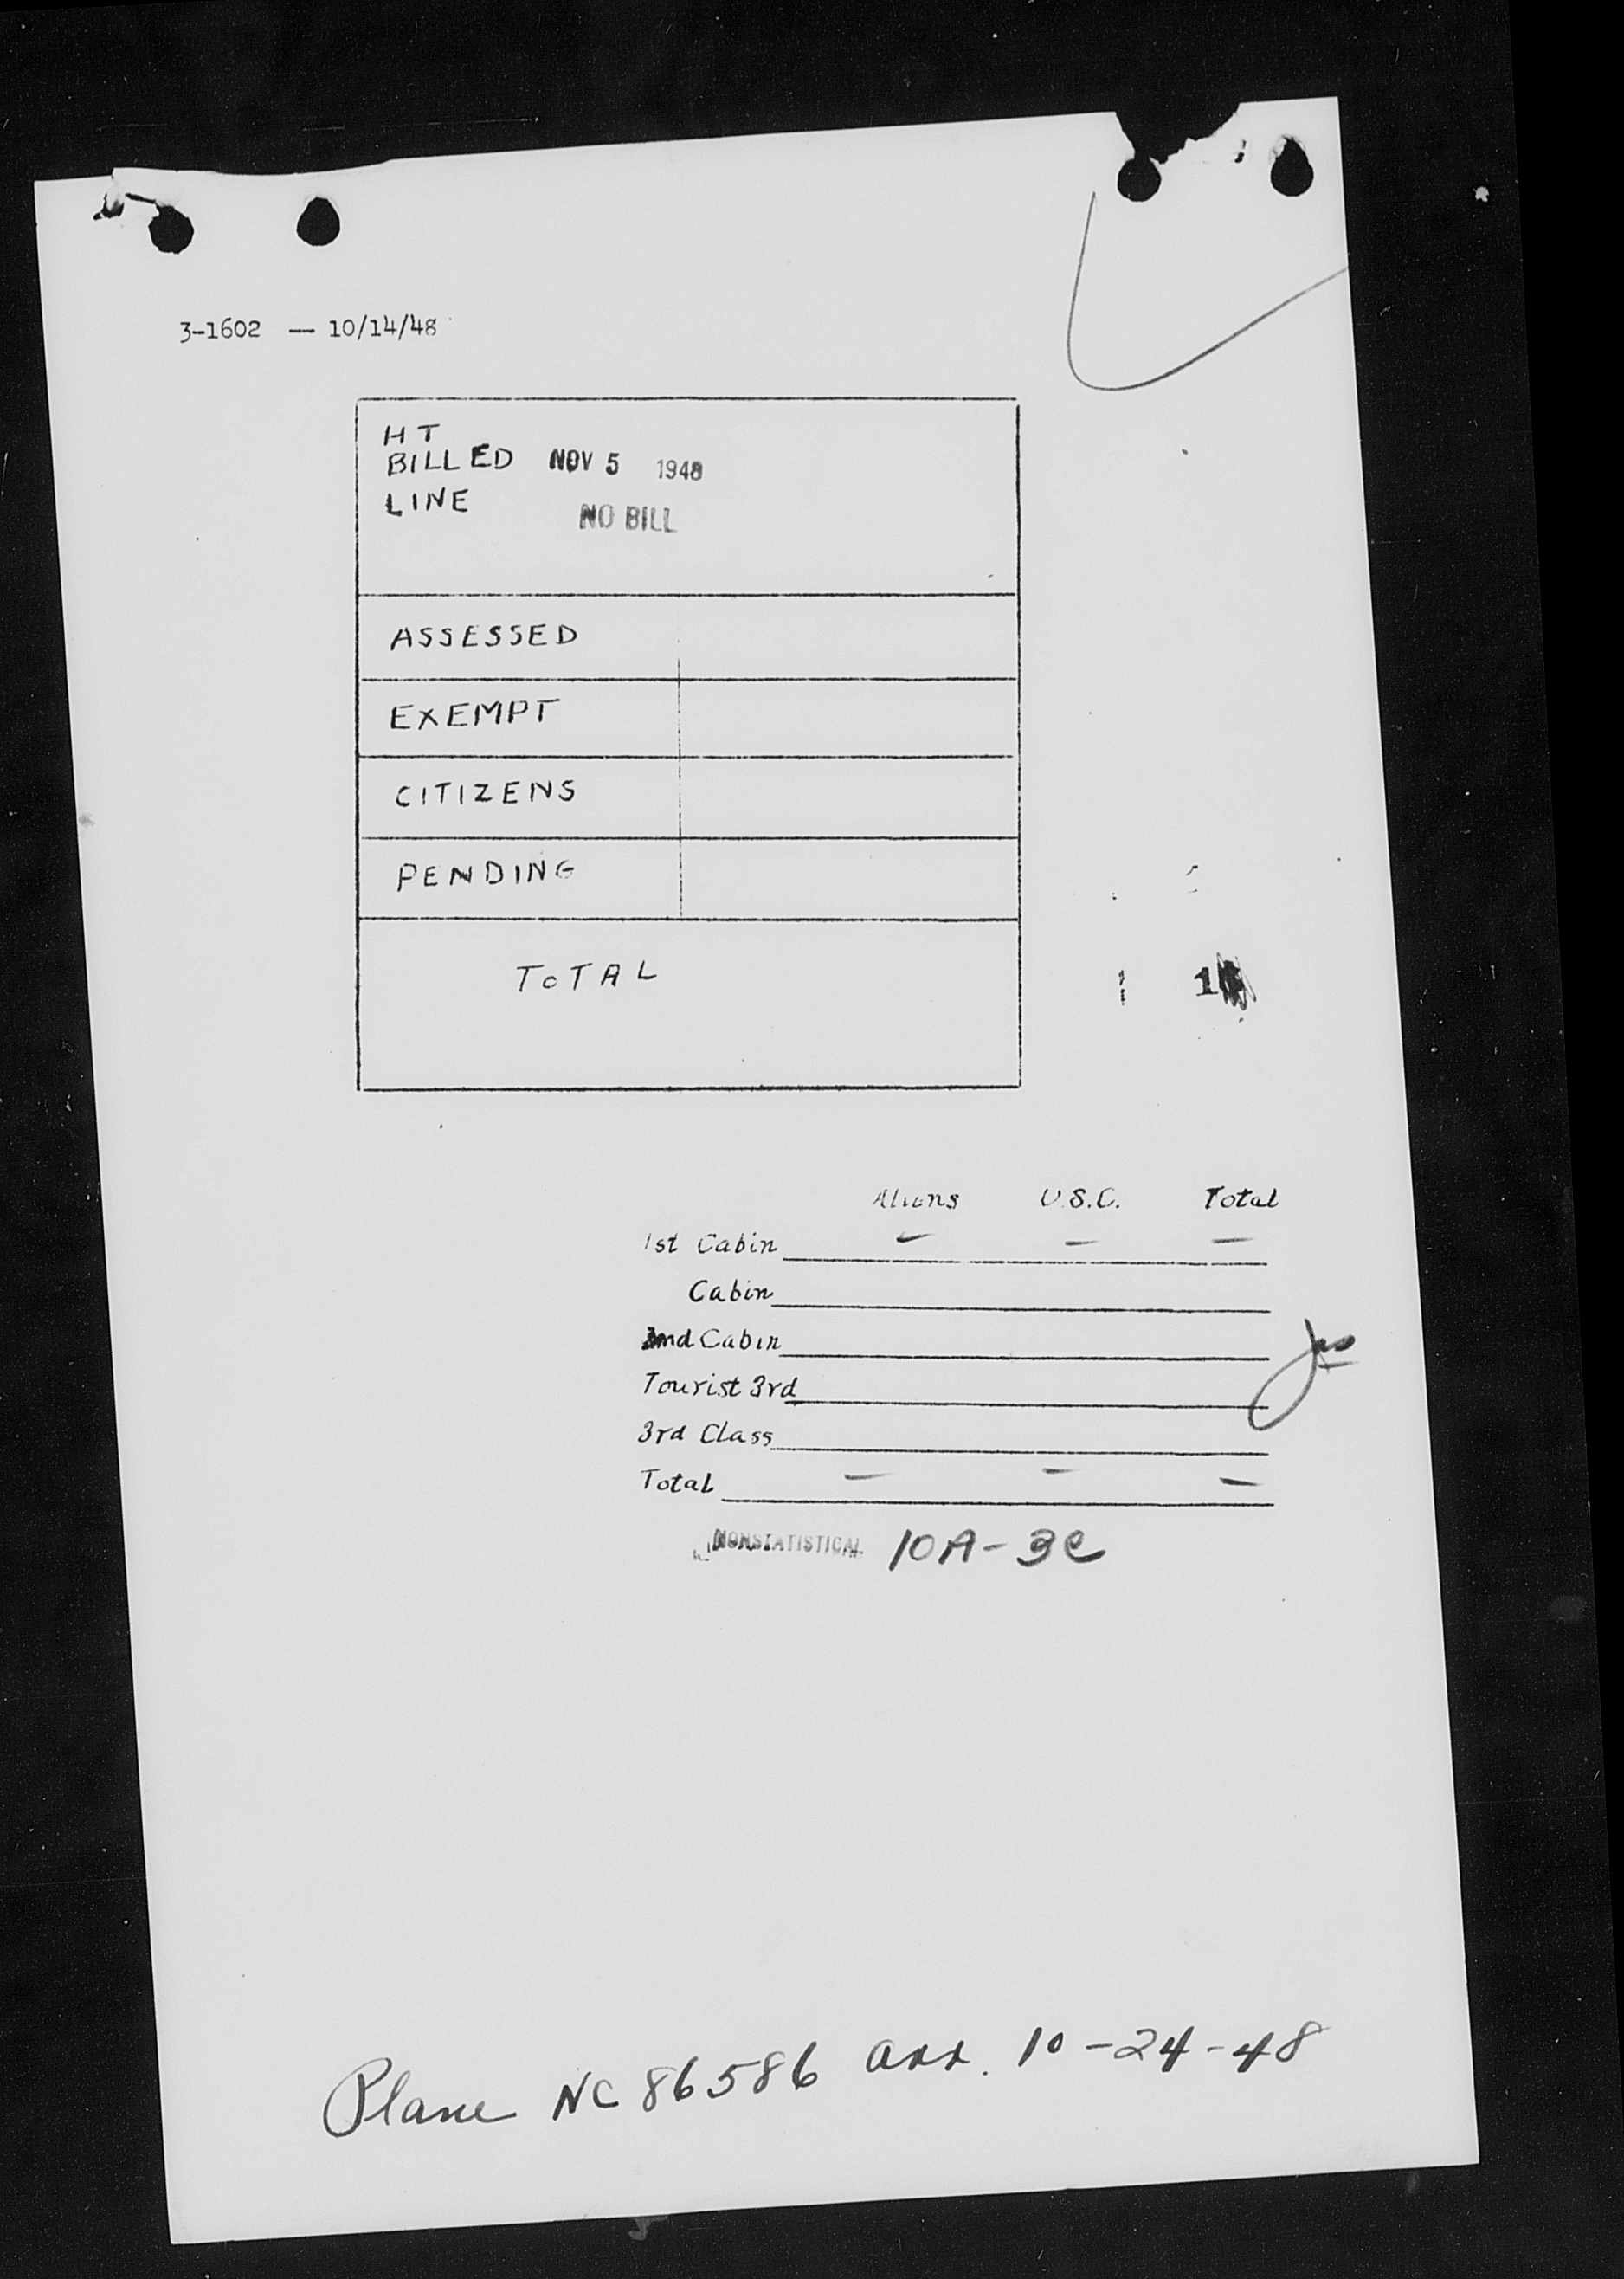 3-1602 — 10/14/48
HT
BILLED NOV 5 1948
LINE NO BILL
ASSESSED
EXEMPT
CITIZENS
PENDING
ToTAL
Aliens U.S.C. Total
1st Cabin — — —
Cabin
2nd Cabin
Tourist 3rd
3rd Class
Total — — —
NONSTATISTICAL 10A-3C
Plane NC 86586 arr. 10-24-48